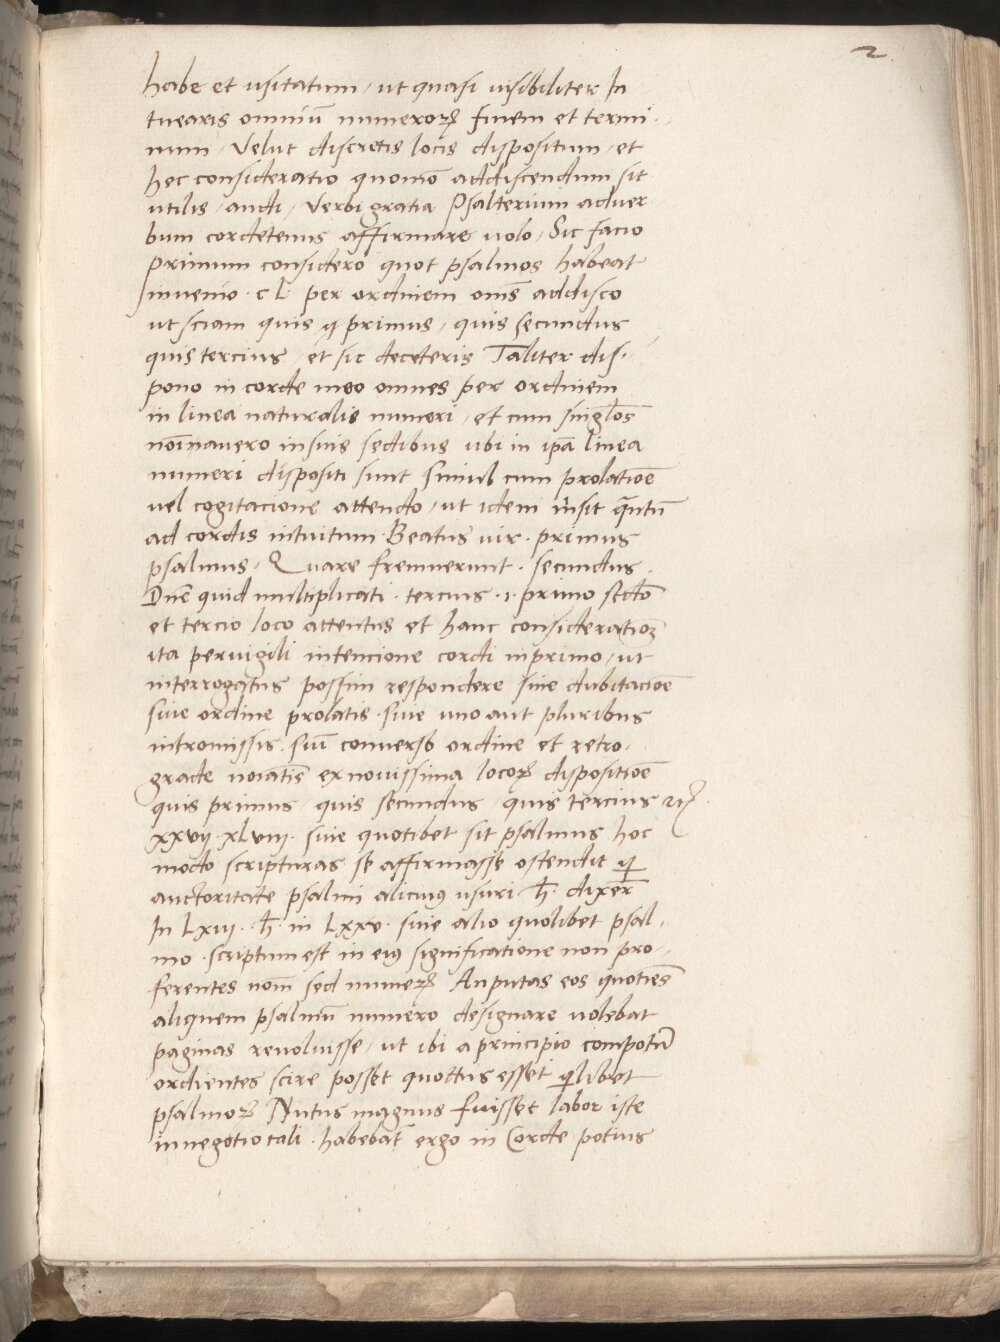 2
habe et usitatum, ut quasi visibiliter In
tuearis omniū numeroꝝ finem et termi
num, Velut discretis locis dispositum, et
hec consideratio quomō addiscendum sit
utilis, audi, Verbi gratia Psalterium adver
bum cordetenus affirmare volo, Sic facio
primum considero quot psalmos habeat
invenio · cL· per ordinem oms̄ addisco
ut sciam quis primus, quis secundus
quis tercius, et sic de ceteris Taliter dis·
pono in corde meo omnes per ordinem
in linea naturalis numeri, et cum singl̄os
noīnavero in suis sedibus ubi in ip̄a linea
numeri dispositi sunt simul cum prolatioē
vel cogitacione attendo, ut idem sit qᷓntū
ad cordis intuitum· Beatus vir· primus
psalmus, Quare fremuerunt· secundus·
Dn̄e quid multiplicati· tercius· ·1· primo sēdo
et tercio loco attentus et hanc consideratioꝫ
ita pervigili intencione cordi inprimo, ut
interrogatus possim respondere sine dubitacioē
sive ordine prolatis· sive uno aut pluribus
intromissis· converso ordine et retro·
grade noīatis ex novissima locoꝝ dispositioē
quis primus, quis secundus, quis tercius
xxvij· xLviij· sive quotlibet sit psalmus hoc
modo scripturas se affirmasse ostendit ꝙ
auctoritate psalmi alicuiꝰ usuri h̄· dixer̄
In Lxiij· h̄· in Lxxv· sive alio quolibet psal·
mo· scriptum est in eiꝰ significatione non pro·
ferentes nom̄ sed numeꝝ An putas eos quotiēs
aliquem psalmū numero designare volebat
paginas revoluisse, ut ibi a principio compotū
ordientes scire posset quottus esset ꝗlibet
psalmoꝝ Nutus magnus fuisset labor iste
in negotio tali· habebat̄ ergo in Corde potius